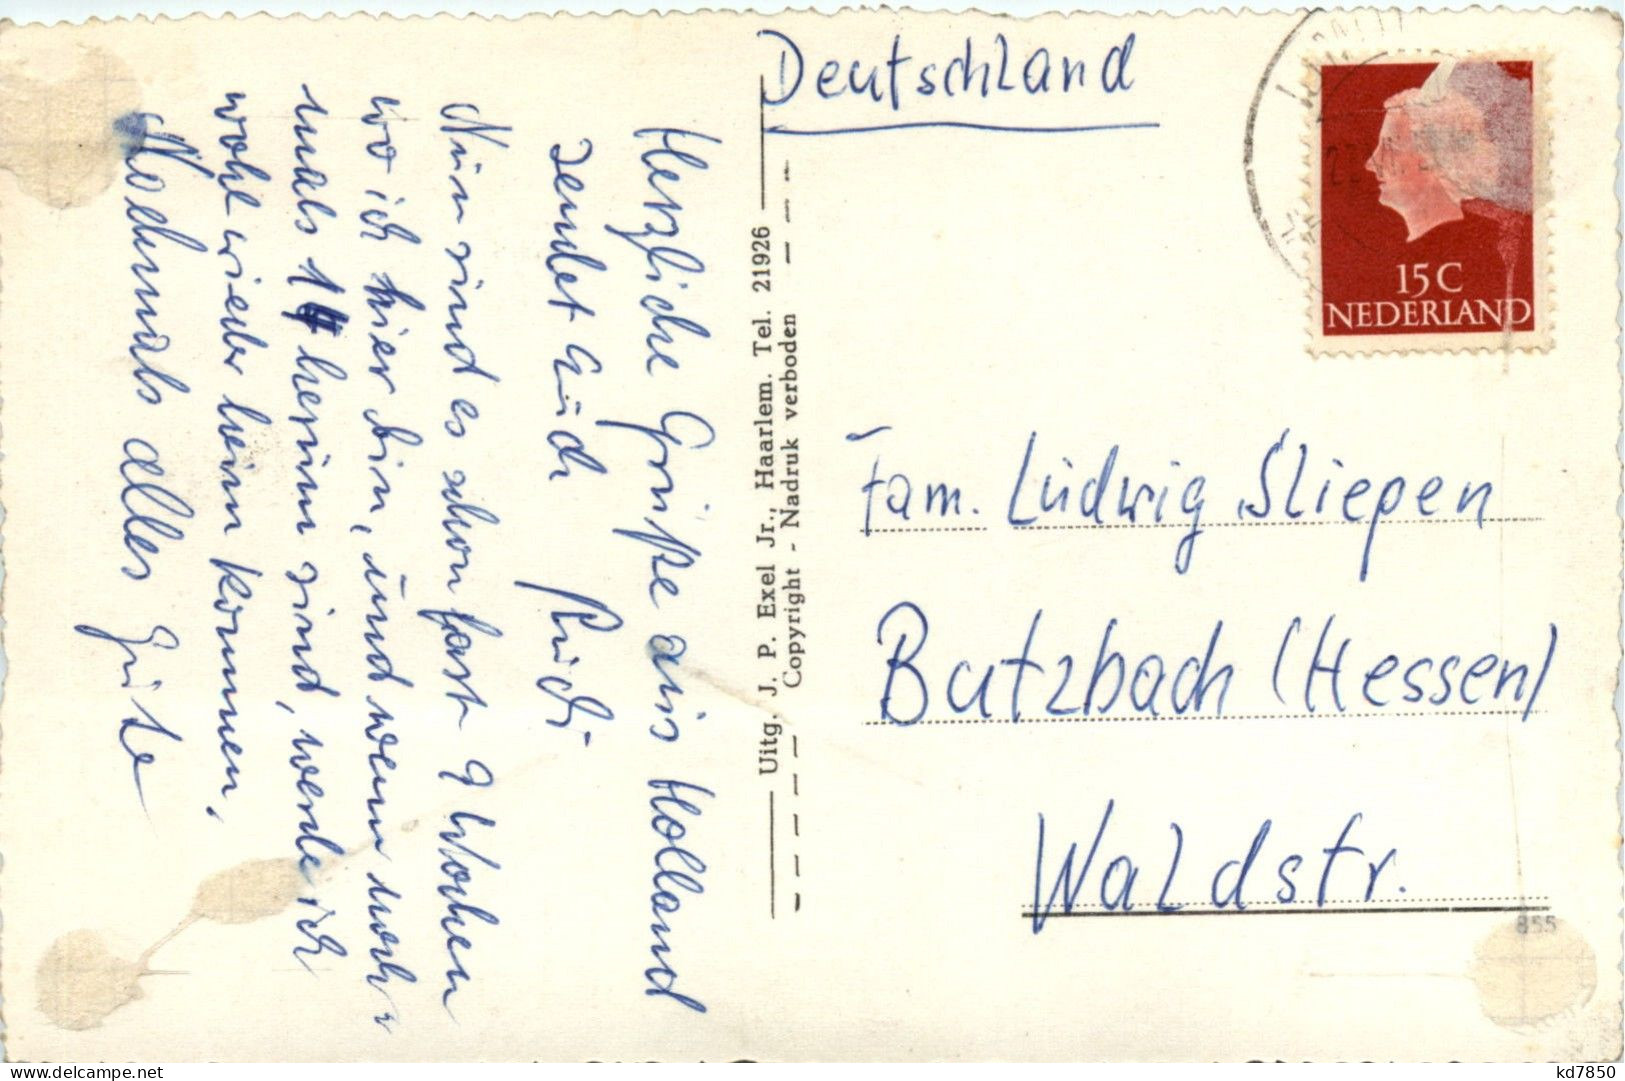 Deutschland
15 C
NEDERLAND
Herzliche Grüße aus Holland
sendet Euch Rudi
Nun sind es schon fast 9 Wochen
wo ich hier bin, und wenn noch-
mals 14 herum sind, werde ich
wohl wieder heim kommen.
Nochmals alles Gute
Uitg. J. P. Exel Jr., Haarlem. Tel. 21926
Copyright - Nadruk verboden
Fam. Ludwig Sliepen
Butzbach (Hessen)
Waldstr.
855
www.delcampe.net
kd7850